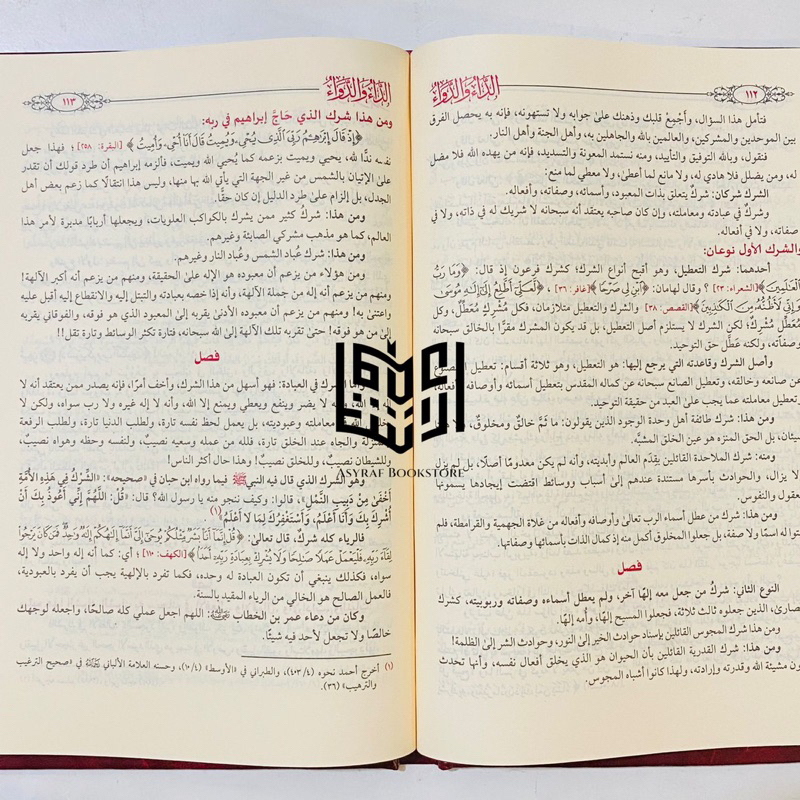 الداء والدواء
١١٢
فتأمل هذا السؤال، وأجمع قلبك وذهنك على جوابه ولا تستهونه، فإنه به يحصل الفرق
بين الموحدين والمشركين، والعالمين بالله والجاهلين به، وأهل الجنة وأهل النار.
فنقول، وبالله التوفيق والتأييد، ومنه نستمد المعونة والتسديد، فإنه من يهده الله فلا مضل
له، ومن يضلل فلا هادي له، ولا مانع لما أعطى، ولا معطي لما منع:
الشرك شركان: شرك يتعلق بذات المعبود، وأسمائه، وصفاته، وأفعاله.
وشرك في عبادته ومعاملته، وإن كان صاحبه يعتقد أنه سبحانه لا شريك له في ذاته، ولا في
صفاته، ولا في أفعاله.
والشرك الأول نوعان:
أحدهما: شرك التعطيل، وهو أقبح أنواع الشرك؛ كشرك فرعون إذ قال: ﴿وَمَا رَبُّ
الْعَالَمِينَ﴾ [الشعراء: ٢٣] ؟ وقال لهامان: ﴿ابْنِ لِي صَرْحًا﴾ [غافر: ٣٦] ، ﴿لَّعَلِّي أَطَّلِعُ إِلَىٰ إِلَٰهِ مُوسَىٰ
وَإِنِّي لَأَظُنُّهُ مِنَ الْكَاذِبِينَ﴾ [القصص: ٣٨] والشرك والتعطيل متلازمان، فكل مُشركٍ مُعطِّل، وكل
مُعطِّل مُشرك؛ لكن الشرك لا يستلزم أصل التعطيل، بل قد يكون المشرك مقرًّا بالخالق سبحانه
وصفاته، ولكنه عَطَّل حق التوحيد.
وأصل الشرك وقاعدته التي يرجع إليها: هو التعطيل، وهو ثلاثة أقسام: تعطيل المصنوع
عن صانعه وخالقه، وتعطيل الصانع سبحانه عن كماله المقدس بتعطيل أسمائه وأوصافه وأفعاله،
وتعطيل معاملته عما يجب على العبد من حقيقة التوحيد.
ومن هذا: شرك طائفة أهل وحدة الوجود الذين يقولون: ما ثَمَّ خالقٌ ومخلوقٌ، ولا ها هنا
شيئان، بل الحق المنزه هو عين الخلق المشبَّه.
ومنه: شرك الملاحدة القائلين بقِدَم العالم وأبديته، وأنه لم يكن معدومًا أصلًا، بل لم يزل
ولا يزال، والحوادث بأسرها مستندة عندهم إلى أسباب ووسائط اقتضت إيجادها يسمونها
العقول والنفوس.
ومن هذا: شرك من عطل أسماء الرب تعالى وأوصافه وأفعاله من غلاة الجهمية والقرامطة، فلم
يثبتوا له اسمًا ولا صفة، بل جعلوا المخلوق أكمل منه إذ كمال الذات بأسمائها وصفاتها.
فصل
النوع الثاني: شرك من جعل معه إلهًا آخر، ولم يعطل أسماءه وصفاته وربوبيته، كشرك
النصارى، الذين جعلوه ثالث ثلاثة، فجعلوا المسيح إلهًا، وأُمه إلهًا.
ومن هذا شرك المجوس القائلين بإسناد حوادث الخير إلى النور، وحوادث الشر إلى الظلمة!
ومن هذا: شرك القدرية القائلين بأن الحيوان هو الذي يخلق أفعال نفسه، وأنها تحدث
بدون مشيئة الله وقدرته وإرادته، ولهذا كانوا أشباه المجوس.
الداء والدواء
١١٣
ومن هذا شرك الذي حَاجَّ إبراهيم في ربه:
﴿إِذْ قَالَ إِبْرَاهِيمُ رَبِّيَ الَّذِي يُحْيِي وَيُمِيتُ قَالَ أَنَا أُحْيِي وَأُمِيتُ﴾ [البقرة: ٢٥٨] ؛ فهذا جعل
نفسه ندًّا لله، يحيي ويميت بزعمه كما يُحيي الله ويميت، فألزمه إبراهيم أن طرد قولك أن تقدر
على الإتيان بالشمس من غير الجهة التي يأتي الله بها منها، وليس هذا انتقالًا كما زعم بعض أهل
الجدل، بل إلزام على طرد الدليل إن كان حقًّا.
ومن هذا: شرك كثير ممن يشرك بالكواكب العلويات، ويجعلها أربابًا مدبرة لأمر هذا
العالم، كما هو مذهب مشركي الصابئة وغيرهم.
ومن هذا: شرك عُباد الشمس وعُباد النار وغيرهم.
ومن هؤلاء من يزعم أن معبوده هو الإله على الحقيقة، ومنهم من يزعم أنه أكبر الآلهة!
ومنهم من يزعم أنه إله من جملة الآلهة، وأنه إذا خصه بعبادته والتبتل إليه والانقطاع إليه أقبل عليه
واعتنى به! ومنهم من يزعم أن معبوده الأدنى يقربه إلى المعبود الذي هو فوقه، والفوقاني يقربه
إلى من هو فوقه! حتى تقربه تلك الآلهة إلى الله سبحانه، فتارة تكثر الوسائط وتارة تقل!!
فصل
وأما الشرك في العبادة: فهو أسهل من هذا الشرك، وأخف أمرًا، فإنه يصدر ممن يعتقد أنه لا
إله إلا الله، وأنه لا يضر وينفع ويعطي ويمنع إلا الله، وأنه لا إله غيره ولا رب سواه، ولكن لا
يخلص لله في معاملته وعبوديته، بل يعمل لحظ نفسه تارة، ولطلب الدنيا تارة، ولطلب الرفعة
والمنزلة والجاه عند الخلق تارة، فلله من عمله وسعيه نصيبٌ، ولنفسه وحظه وهواه نصيبٌ،
وللشيطان نصيبٌ، وللخلق نصيبٌ! وهذا حال أكثر الناس!
وهو الشرك الذي قال فيه النبي ﷺ فيما رواه ابن حبان في «صحيحه»: «الشِّرْكُ فِي هَذِهِ الأُمَّةِ
أَخْفَى مِنْ دَبِيبِ النَّمْلِ»، قالوا: وكيف ننجو منه يا رسول الله؟ قال: «قُلْ: اللَّهُمَّ إِنِّي أَعُوذُ بِكَ أَنْ
أُشْرِكَ بِكَ وَأَنَا أَعْلَمُ، وَأَسْتَغْفِرُكَ لِمَا لَا أَعْلَمُ» (١)
فالرياء كله شرك، قال تعالى: ﴿قُلْ إِنَّمَا أَنَا بَشَرٌ مِّثْلُكُمْ يُوحَىٰ إِلَيَّ أَنَّمَا إِلَٰهُكُمْ إِلَٰهٌ وَاحِدٌ فَمَن كَانَ يَرْجُوا
لِقَاءَ رَبِّهِ فَلْيَعْمَلْ عَمَلًا صَالِحًا وَلَا يُشْرِكْ بِعِبَادَةِ رَبِّهِ أَحَدًا﴾ [الكهف: ١١٠] ؛ أي: كما أنه إله واحد ولا إله
سواه، فكذلك ينبغي أن تكون العبادة له وحده، فكما تفرد بالإلهية يجب أن يفرد بالعبودية،
فالعمل الصالح هو الخالي من الرياء المقيد بالسنة.
وكان من دعاء عمر بن الخطاب رضي الله عنه: اللهم اجعل عملي كله صالحًا، واجعله لوجهك
خالصًا ولا تجعل لأحد فيه شيئًا.
(١) أخرج أحمد نحوه (٤٠٣/٤)، والطبراني في «الأوسط» (١٠/٤)، وحسنه العلامة الألباني رحمه الله في «صحيح الترغيب
والترهيب» (٣٦).
ASYRAF BOOKSTORE